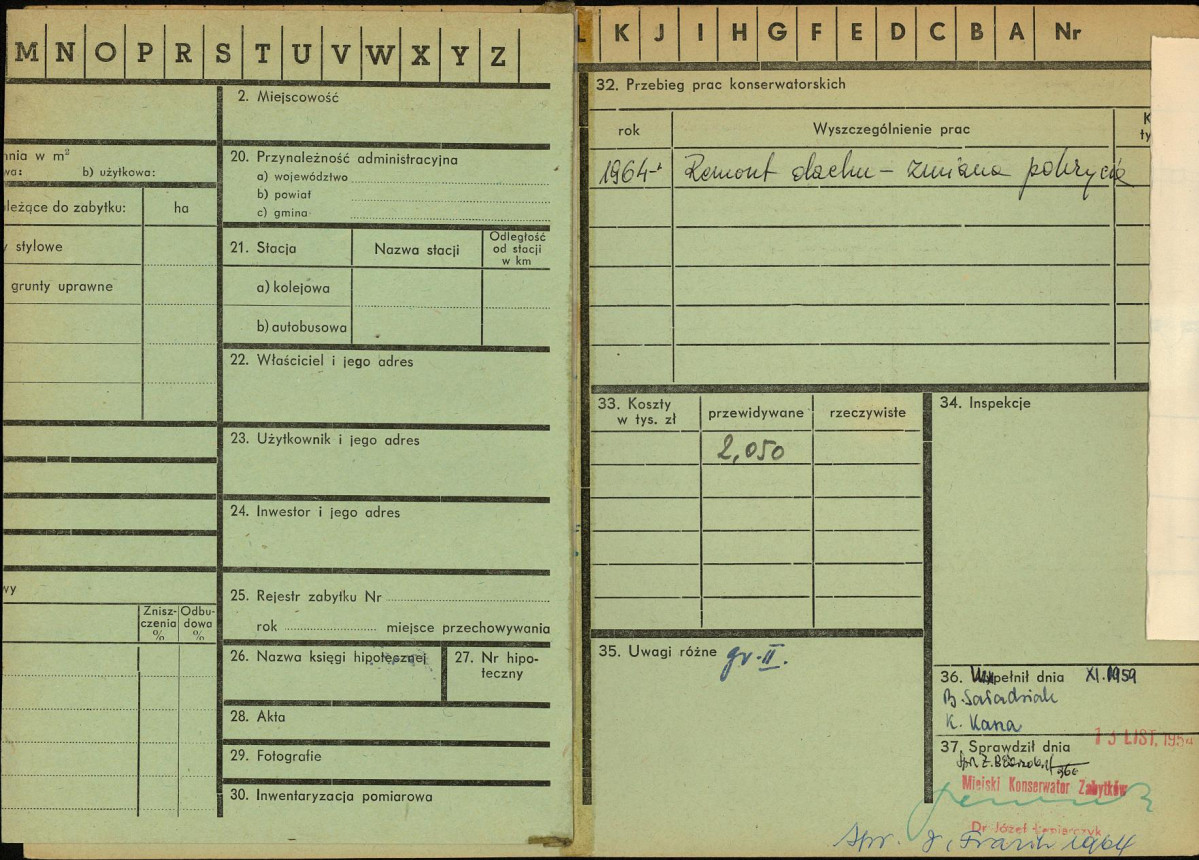 M N O P R S T U V W X Y Z
nia w m²
wa: b) użytkowa:
leżące do zabytku: ha
y stylowe
grunty uprawne
wy
Znisz-
czenia
%
Odbu-
dowa
%
2. Miejscowość
20. Przynależność administracyjna
a) województwo
b) powiat
c) gmina
21. Stacja
Nazwa stacji
Odległość
od stacji
w km
a) kolejowa
b) autobusowa
22. Właściciel i jego adres
23. Użytkownik i jego adres
24. Inwestor i jego adres
25. Rejestr zabytku Nr
rok miejsce przechowywania
26. Nazwa księgi hipotecznej
27. Nr hipo-
teczny
28. Akta
29. Fotografie
30. Inwentaryzacja pomiarowa
L K J I H G F E D C B A Nr
32. Przebieg prac konserwatorskich
rok Wyszczególnienie prac K
ty
1964 Remont dachu – zmiana pokrycia
33. Koszty
w tys. zł
przewidywane rzeczywiste
2,050
34. Inspekcje
35. Uwagi różne gr. II.
36. Wypełnił dnia XI.1959
K. Kana
37. Sprawdził dnia
13 LIST. 195
Miejski Konserwator Zabytków
Dr Józef
Spr. J. 1964